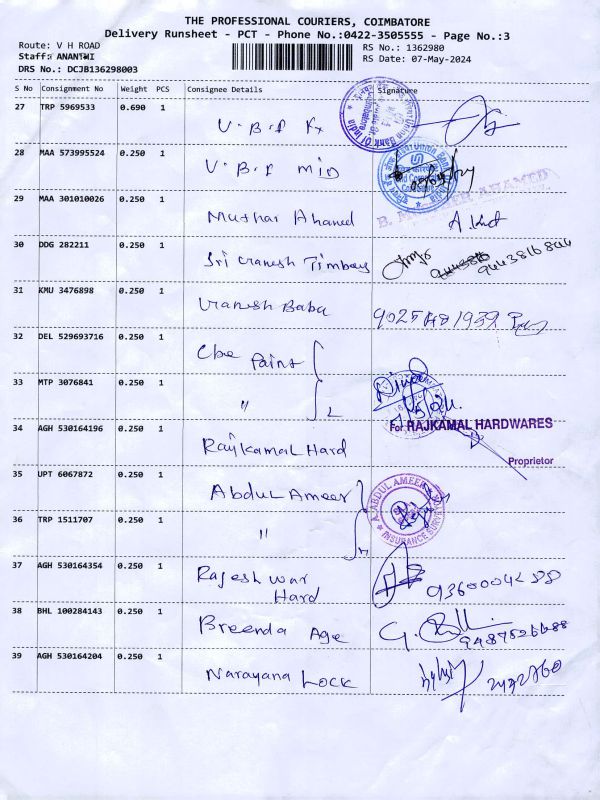 THE PROFESSIONAL COURIERS, COIMBATORE
Delivery Runsheet - PCT - Phone No.:0422-3505555 - Page No.:3
Route: V H ROAD
RS No.: 1362980
Staff: ANANTHI
RS Date: 07-May-2024
DRS No.: DCJB136298003
S No Consignment No Weight PCS Consignee Details Signature
27 TRP 5969533 0.690 1 U.B.I
Union Bank Of India
28 MAA 573995524 0.250 1 U.B.I min
29 MAA 301010026 0.250 1 Muthar Ahamed
30 DDG 282211 0.250 1 Sri Ganesh Timbers 9443816844
31 KMU 3476898 0.250 1 Ganesh Baba
32 DEL 529693716 0.250 1 Cbe Paint
33 MTP 3076841 0.250 1 "
34 AGH 530164196 0.250 1 Rajkamal Hard
For RAJKAMAL HARDWARES
Proprietor
35 UPT 6067872 0.250 1 Abdul Ameer
A. ABDUL AMEER
INSURANCE SURVEYOR
36 TRP 1511707 0.250 1 "
37 AGH 530164354 0.250 1 Rajeshwar
Hard
38 BHL 100284143 0.250 1 Breenda Age
39 AGH 530164204 0.250 1 Narayana Lock